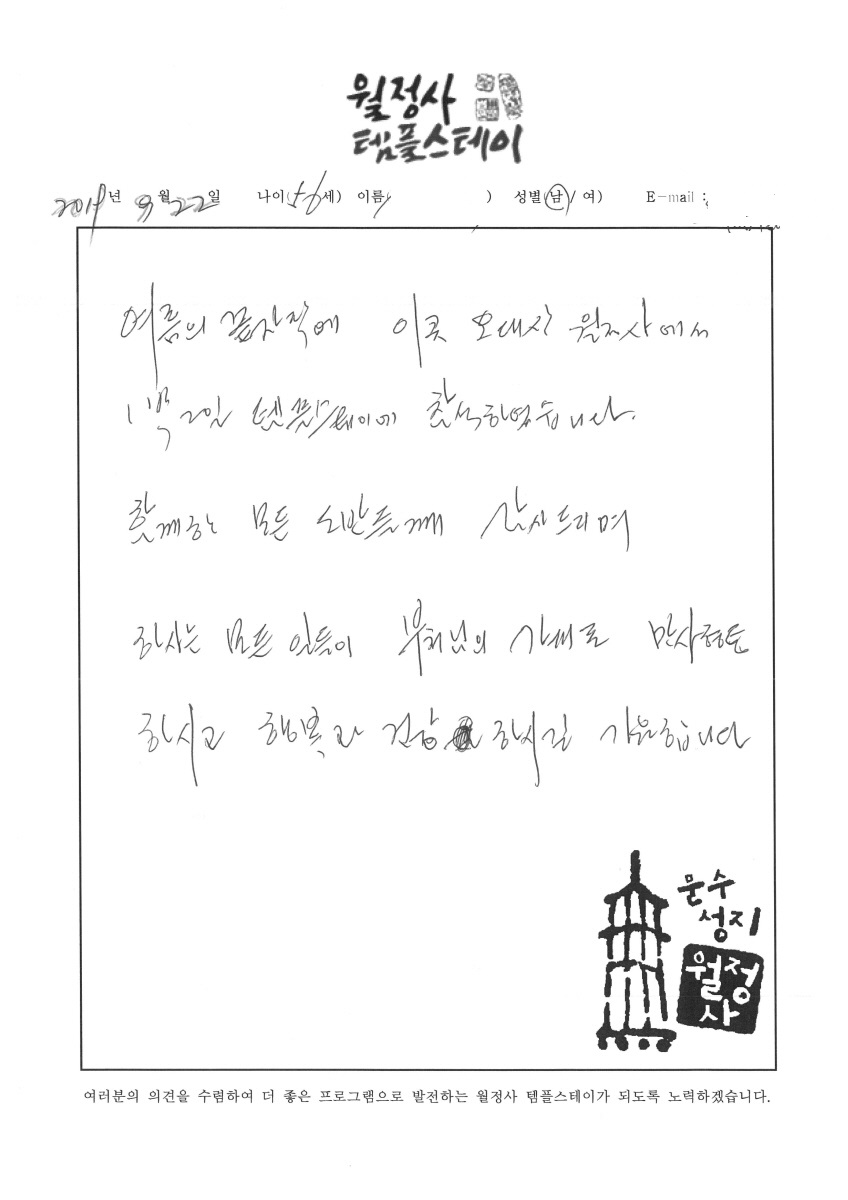 월정사
템플스테이
2019년 9월 22일 나이(56세) 이름( ) 성별(남/여) E-mail :
여름의 끝자락에 이곳 오대산 월정사에서
1박2일 템플스테이에 참석하였습니다.
함께하는 모든 도반들께 감사드리며
하시는 모든 일들이 부처님의 가피로 만사형통
하시고 행복과 건강 하시길 기원합니다
문수
성지
월정
사
여러분의 의견을 수렴하여 더 좋은 프로그램으로 발전하는 월정사 템플스테이가 되도록 노력하겠습니다.